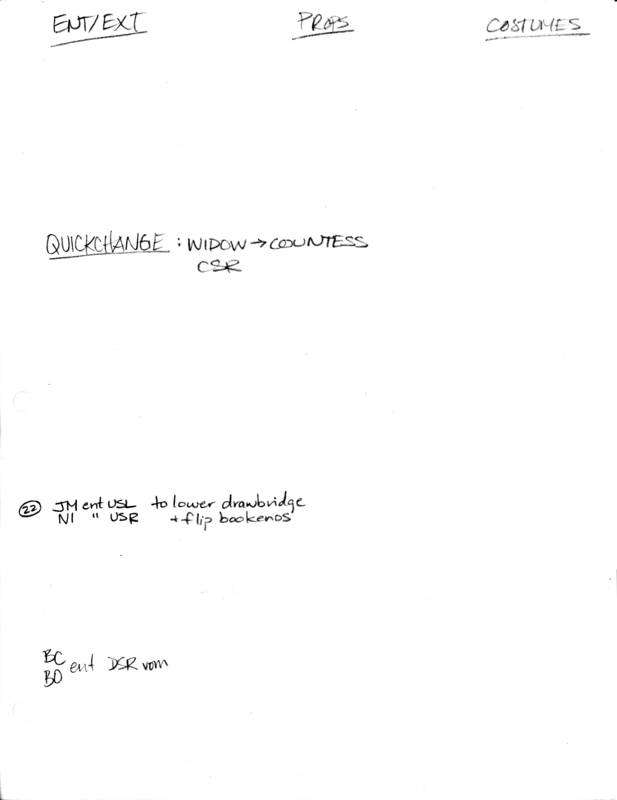 ENT/EXT PROPS COSTUMES
QUICKCHANGE : WIDOW → COUNTESS
CSR
22 JM ent USL to lower drawbridge
NI " USR + flip bookends
BC
ent DSR vom
BD